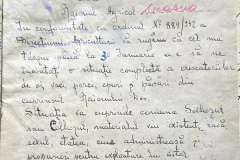 Raionul Agricol
In conformitate cu ordinul Nº 889/942 a
Direcțiunii Agriculturii vă rugăm ca cel mai
târziu până la 30 Ianuarie a.c. să ne
înaintați o situație completă a crescătoriilor
de oi, vaci, porci, epuri și păsări din
cuprinsul Raionului Dvs.
Situația va cuprinde comuna Solhozul
sau Colhozul, materialul viu existent, rasă
sexul, etatea, cine administrează și
propuneri pentru exploatare în viitor